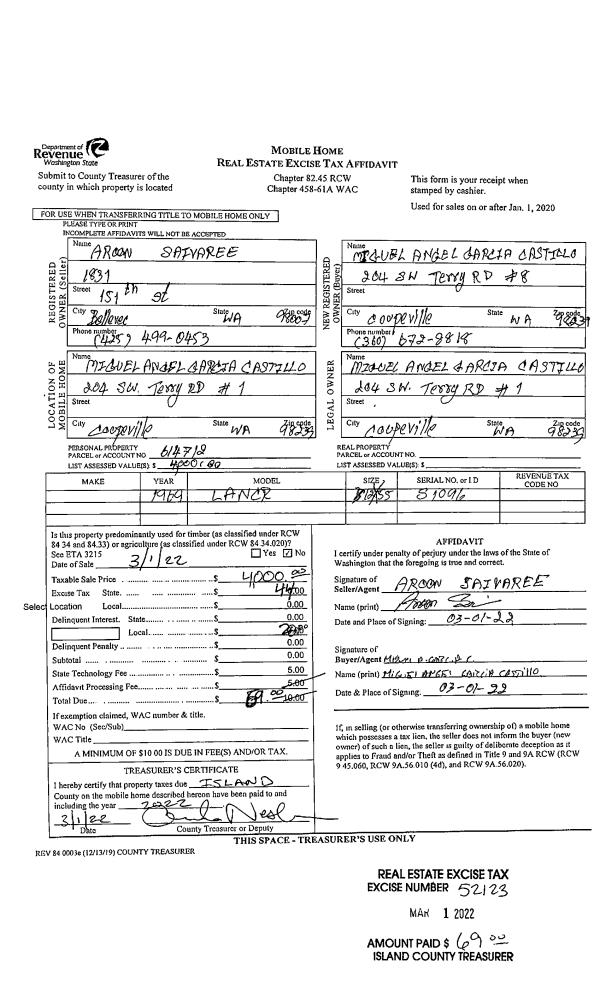 Department of
Revenue
Washington State
MOBILE HOME
REAL ESTATE EXCISE TAX AFFIDAVIT
Submit to County Treasurer of the
county in which property is located
Chapter 82.45 RCW
Chapter 458-61A WAC
This form is your receipt when
stamped by cashier.
Used for sales on or after Jan. 1, 2020
FOR USE WHEN TRANSFERRING TITLE TO MOBILE HOME ONLY
PLEASE TYPE OR PRINT
INCOMPLETE AFFIDAVITS WILL NOT BE ACCEPTED
REGISTERED
OWNER (Seller)
Name
AROON SAIVAREE
1831
Street 151 th st
City State Zip code
WA 98007
Phone number
(425) 499-0453
NEW REGISTERED
OWNER (Buyer)
Name
MIGUEL ANGEL GARCIA CASTILLO
204 SW Terry RD #8
Street
City State Zip code
Coupeville WA 98239
Phone number
(360) 672-8818
LOCATION OF
MOBILE HOME
Name
MIGUEL ANGEL GARCIA CASTILLO
204 SW. Terry RD # 1
Street
City State Zip code
Coupeville WA 98239
LEGAL OWNER
Name
MIGUEL ANGEL GARCIA CASTILLO
204 SW. Terry RD # 1
Street
City State Zip code
Coupeville WA 98239
PERSONAL PROPERTY
PARCEL or ACCOUNT NO. 614712
LIST ASSESSED VALUE(S): $
REAL PROPERTY
PARCEL or ACCOUNT NO.
LIST ASSESSED VALUE(S): $
MAKE YEAR MODEL SIZE SERIAL NO. or I D REVENUE TAX CODE NO
1969 LANCR S1096
Is this property predominantly used for timber (as classified under RCW
84 34 and 84.33) or agriculture (as classified under RCW 84 34.020)?
See ETA 3215 Yes No
Date of Sale 3/1/22
Taxable Sale Price $ 4,000.00
Excise Tax State. $ 44.00
Select Location Local $ 0.00
Delinquent Interest. State $ 0.00
Local $
Delinquent Penalty $ 0.00
Subtotal $ 0.00
State Technology Fee $ 5.00
Affidavit Processing Fee $ 5.00
Total Due $ 69.00 10.00
If exemption claimed, WAC number & title.
WAC No (Sec/Sub)
WAC Title
A MINIMUM OF $10 00 IS DUE IN FEE(S) AND/OR TAX.
TREASURER'S CERTIFICATE
I hereby certify that property taxes due ISLAND
County on the mobile home described hereon have been paid to and
including the year 2022
3/1/22
Date County Treasurer or Deputy
AFFIDAVIT
I certify under penalty of perjury under the laws of the State of
Washington that the foregoing is true and correct.
Signature of
Seller/Agent AROON SAIVAREE
Name (print)
Date and Place of Signing: 03-01-22
Signature of
Buyer/Agent
Name (print) MIGUEL ANGEL GARCIA CASTILLO
Date & Place of Signing: 03-01-22
If, in selling (or otherwise transferring ownership of) a mobile home
which possesses a tax lien, the seller does not inform the buyer (new
owner) of such a lien, the seller is guilty of deliberate deception as it
applies to Fraud and/or Theft as defined in Title 9 and 9A RCW (RCW
9 45.060, RCW 9A.56.010 (4d), and RCW 9A.56.020).
THIS SPACE - TREASURER'S USE ONLY
REV 84 0003e (12/13/19) COUNTY TREASURER
REAL ESTATE EXCISE TAX
EXCISE NUMBER 52123
MAR 1 2022
AMOUNT PAID $ 69.00
ISLAND COUNTY TREASURER